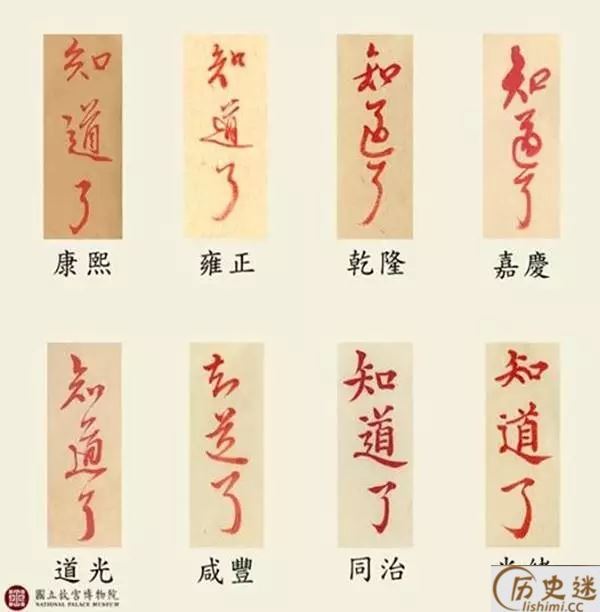 知道了
知道了
知道了
知道了
康熙
雍正
乾隆
嘉慶
知道了
知道了
知道了
知道了
道光
咸豐
同治
國立故宮博物院
NATIONAL PALACE MUSEUM
历史迷
lishimi.cc